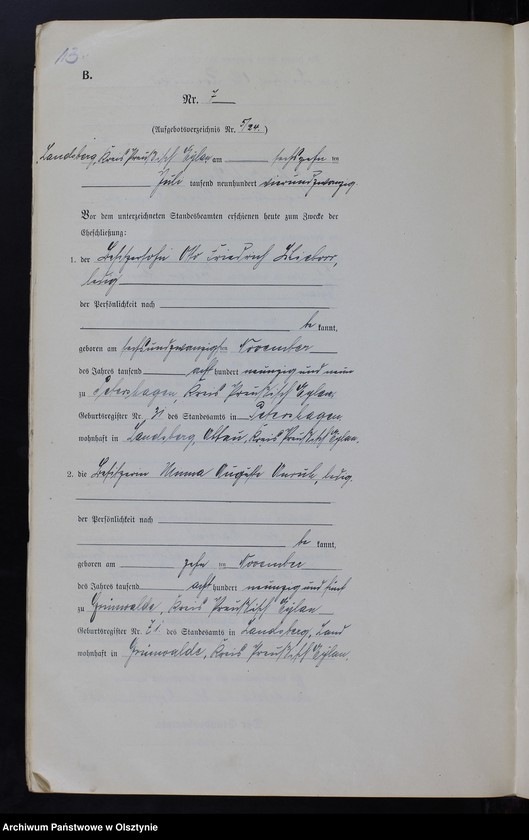 13
B.
Nr. 7
(Aufgebotsverzeichnis Nr. 5/24.)
Landsberg, Kreis Preußisch Eylau am sechszehn ten
Juli tausend neunhundert vierundzwanzig.
Vor dem unterzeichneten Standesbeamten erschienen heute zum Zwecke der
Eheschließung:
1. der Besitzersohn Otto Friedrich
ledig
der Persönlichkeit nach
be kannt,
geboren am sechsundzwanzigsten November
des Jahres tausend acht hundert neunzig und neun
zu Petershagen, Kreis Preußisch Eylau,
Geburtsregister Nr. des Standesamts in Petershagen,
wohnhaft in Landsberg, Kreis Preußisch Eylau.
2. die Besitzerin Emma Auguste Unruh, ledig.
der Persönlichkeit nach
be kannt,
geboren am zehn ten November
des Jahres tausend acht hundert neunzig und fünf
zu Grünwalde, Kreis Preußisch Eylau
Geburtsregister Nr. 71 des Standesamts in Landsberg, Land
wohnhaft in Grünwalde, Kreis Preußisch Eylau.
Archiwum Państwowe w Olsztynie